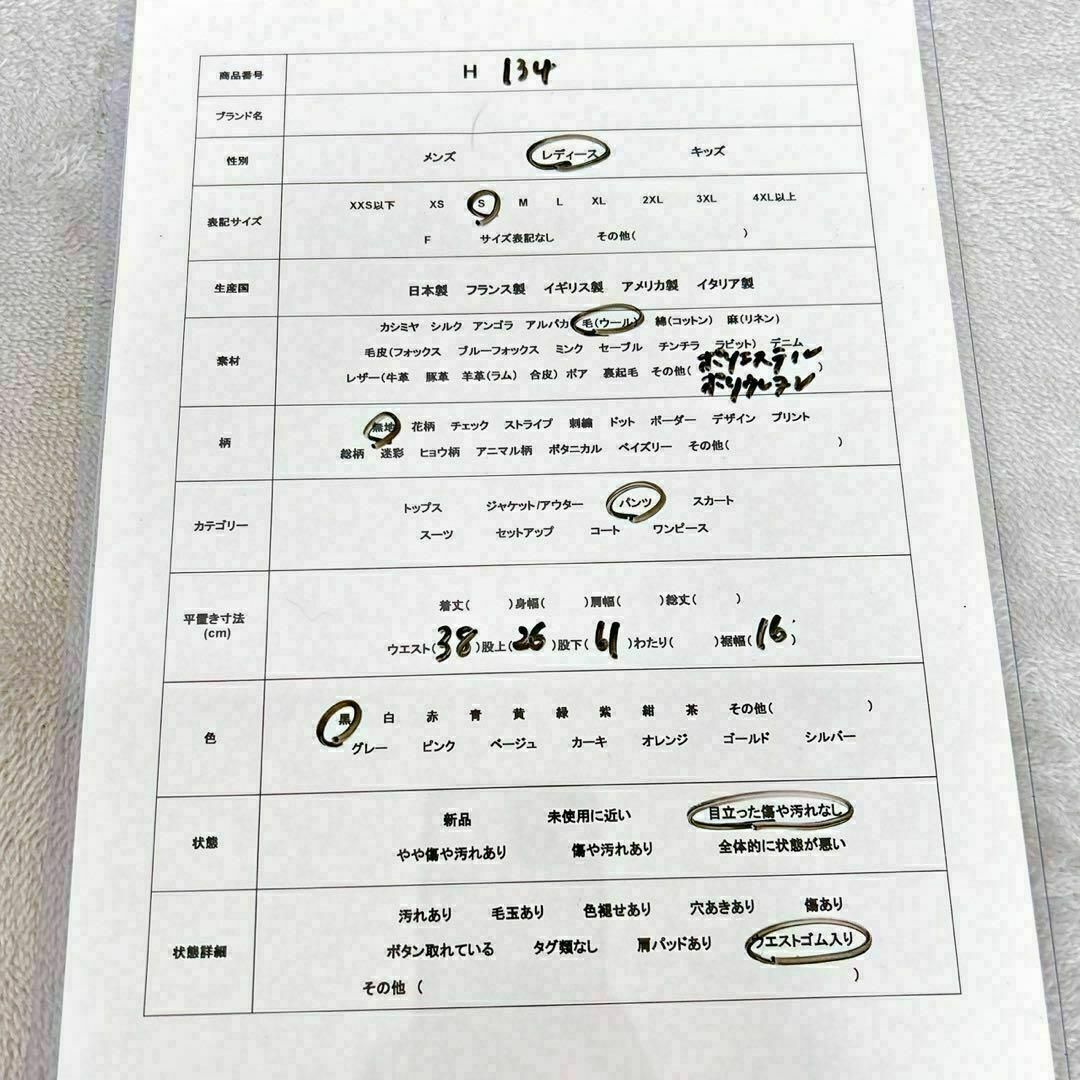 商品番号 H 134
ブランド名
性別 メンズ レディース キッズ
表記サイズ XXS以下 XS S M L XL 2XL 3XL 4XL以上
F サイズ表記なし その他( )
生産国 日本製 フランス製 イギリス製 アメリカ製 イタリア製
素材 カシミヤ シルク アンゴラ アルパカ 毛(ウール) 綿(コットン) 麻(リネン)
毛皮(フォックス ブルーフォックス ミンク セーブル チンチラ ラビット) デニム
レザー(牛革 豚革 羊革(ラム) 合皮) ボア 裏起毛 その他( ポリエステル )
ポリウレタン
柄 無地 花柄 チェック ストライプ 刺繍 ドット ボーダー デザイン プリント
総柄 迷彩 ヒョウ柄 アニマル柄 ボタニカル ペイズリー その他( )
カテゴリー トップス ジャケット/アウター パンツ スカート
スーツ セットアップ コート ワンピース
平置き寸法 着丈( )身幅( )肩幅( )総丈( )
(cm) ウエスト(38)股上(26)股下(61)わたり( )裾幅(16)
色 黒 白 赤 青 黄 緑 紫 紺 茶 その他( )
グレー ピンク ベージュ カーキ オレンジ ゴールド シルバー
状態 新品 未使用に近い 目立った傷や汚れなし
やや傷や汚れあり 傷や汚れあり 全体的に状態が悪い
状態詳細 汚れあり 毛玉あり 色褪せあり 穴あきあり 傷あり
ボタン取れている タグ類なし 肩パッドあり ウエストゴム入り
その他 ( )